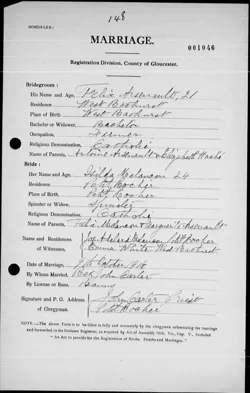 148
SCHEDULE B.
MARRIAGE.
001046
Registration Division, County of Gloucester.
Bridegroom:
His Name and Age, Felix Arsenault, 21
Residence West Bathurst
Place of Birth West Bathurst
Bachelor or Widower, Bachelor
Occupation, Farmer
Religious Denomination, Catholic
Name of Parents, Antoine Arsenault & Elizabeth
Bride:
Her Name and Age, Hilda Melanson 24
Residence Petit Rocher
Place of Birth Petit Rocher
Spinster or Widow, Spinster
Religious Denomination, Catholic
Name of Parents, Melanson Marguerite Arsenault
Name and Residences of Witnesses, Melanson Petit Rocher
White West Bathurst
Date of Marriage, October
By Whom Married, Rev. John Carter
By License or Banns, Banns
Signature and P. O. Address of Clergyman, John Carter Priest
Petit Rocher
NOTE.—The above Form is to be filled in fully and accurately by the clergyman solemnizing the marriage
and forwarded to the Division Registrar, as required by Act of Assembly
" An Act to provide for the Registration of Births, Deaths and Marriages."